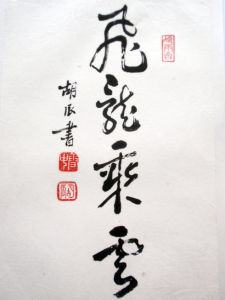 飛龍乘雲
胡辰書